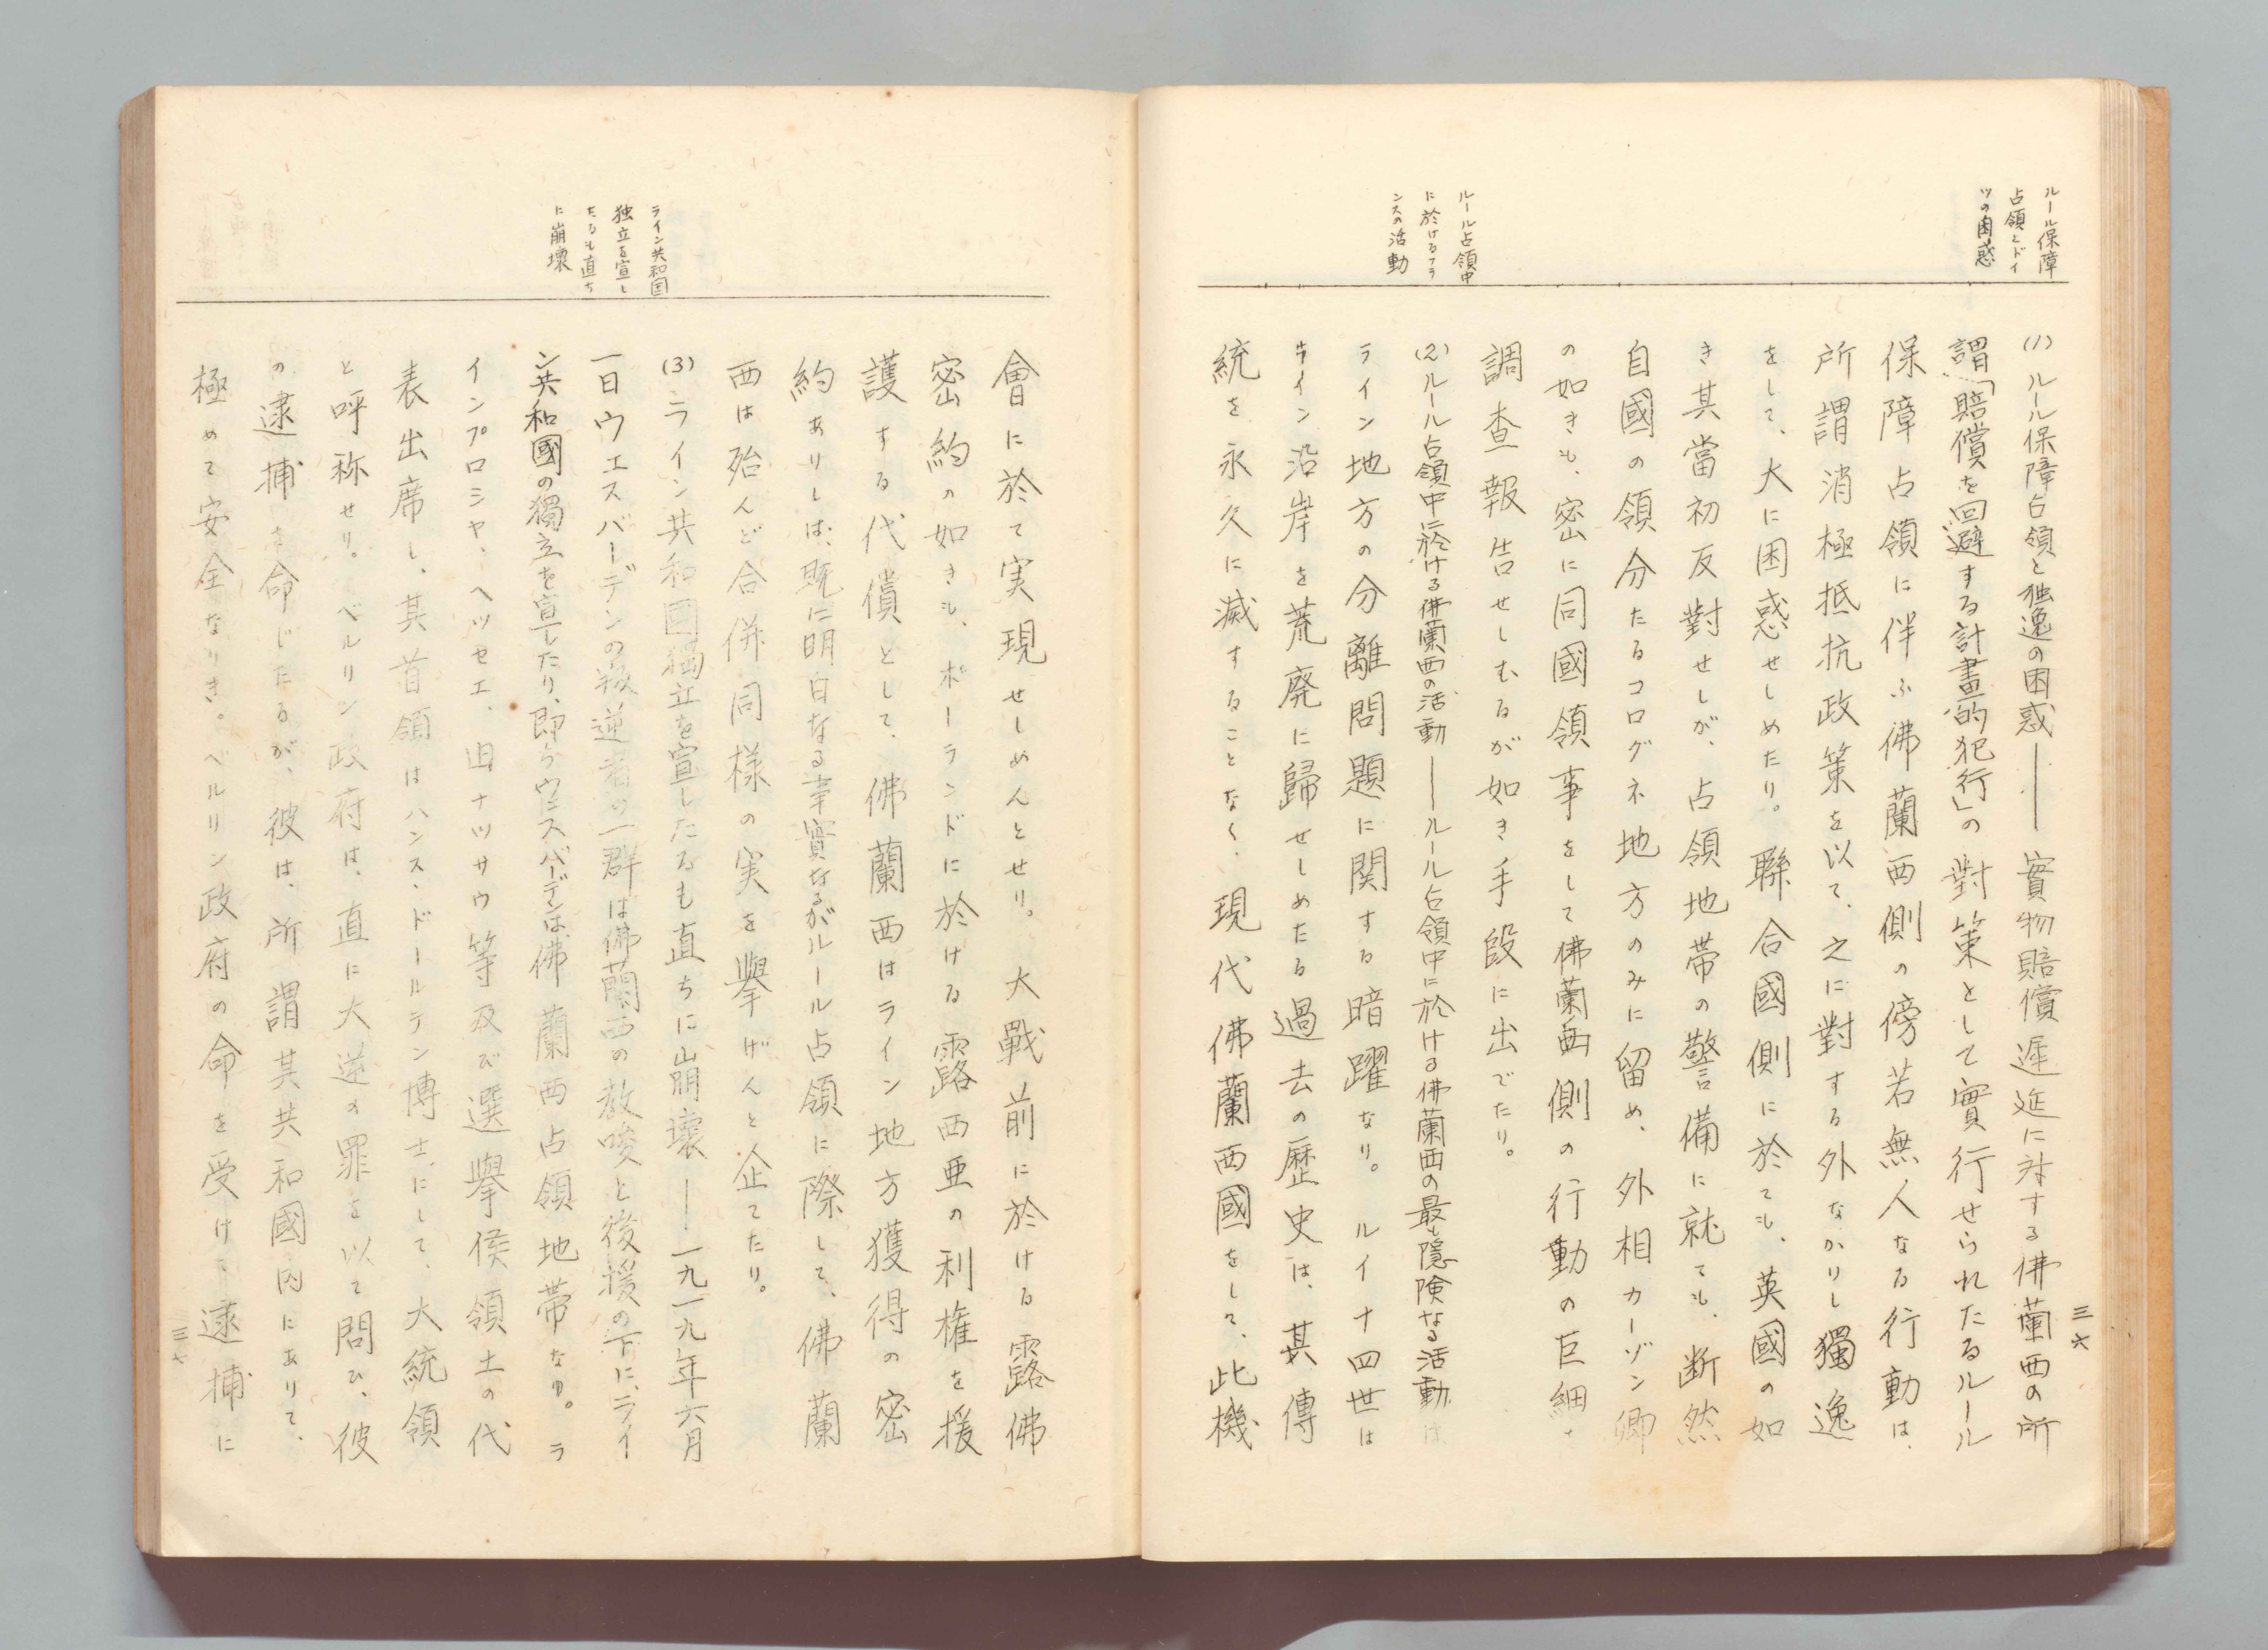 ルール保障
占領とドイ
ツの困惑
三六
(1)ルール保障占領と独逸の困惑――實物賠償遅延に対する佛蘭西の所
謂「賠償を回避する計畫的犯行」の對策として實行せられたるルール
保障占領に伴ふ佛蘭西側の傍若無人なる行動は、
所謂消極抵抗政策を以て、之に對する外なかりし獨逸
をして、大に困惑せしめたり。聯合國側に於ても、英國の如
き其當初反對せしが、占領地帯の警備に就ても、断然
自國の領分たるコログネ地方のみに留め、外相カーゾン卿
の如きも、密に同國領事をして佛蘭西側の行動の巨細を
調査報告せしむるが如き手段に出でたり。
ルール占領中
に於けるフラ
ンスの活動
(2)ルール占領中に於ける佛蘭西の活動――ルール占領中に於ける佛蘭西の最も隠険なる活動は
ライン地方の分離問題に関する暗躍なり。ルイ十四世は
ライン沿岸を荒廃に歸せしめたる過去の歴史は、其傳
統を永久に滅することなく、現代佛蘭西國をして、此機
會に於て実現せしめんとせり。大戰前に於ける露佛
密約の如きも、ポーランドに於ける露西亜の利権を援
護する代償として、佛蘭西はライン地方獲得の密
約ありしは、既に明白なる事實なるがルール占領に際して、佛蘭
西は殆んど合併同様の実を擧げんと企てたり。
ライン共和国
独立を宣し
たるも直ち
に崩壊
(3)ライン共和國獨立を宣したるも直ちに崩壊――一九一九年六月
一日ウエスバーデンの叛逆者の一群は佛蘭西の教唆と後援の下に、ライ
ン共和國の獨立を宣したり、即ちウエスバーデンは佛蘭西占領地帯なり。ラ
インプロシヤ、ヘツセエ、旧ナツサウ等及び選擧侯領土の代
表出席し、其首領はハンス、ドールテン博士にして、大統領
と呼称せり。ベルリン政府は、直に大逆の罪を以て問ひ、彼
の逮捕を命じたるが、彼は、所謂其共和國内にありて、
極めて安全なりき。ベルリン政府の命を受けて逮捕に
三七